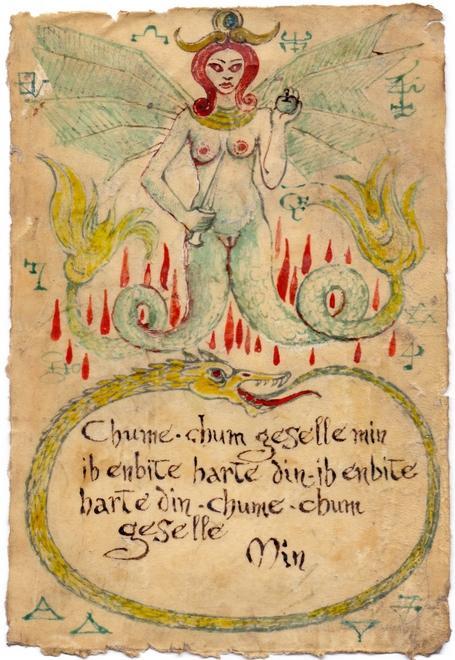 Chume · chum geselle min
ih enbite harte din · ih enbite
harte din · chume · chum
geselle
Min